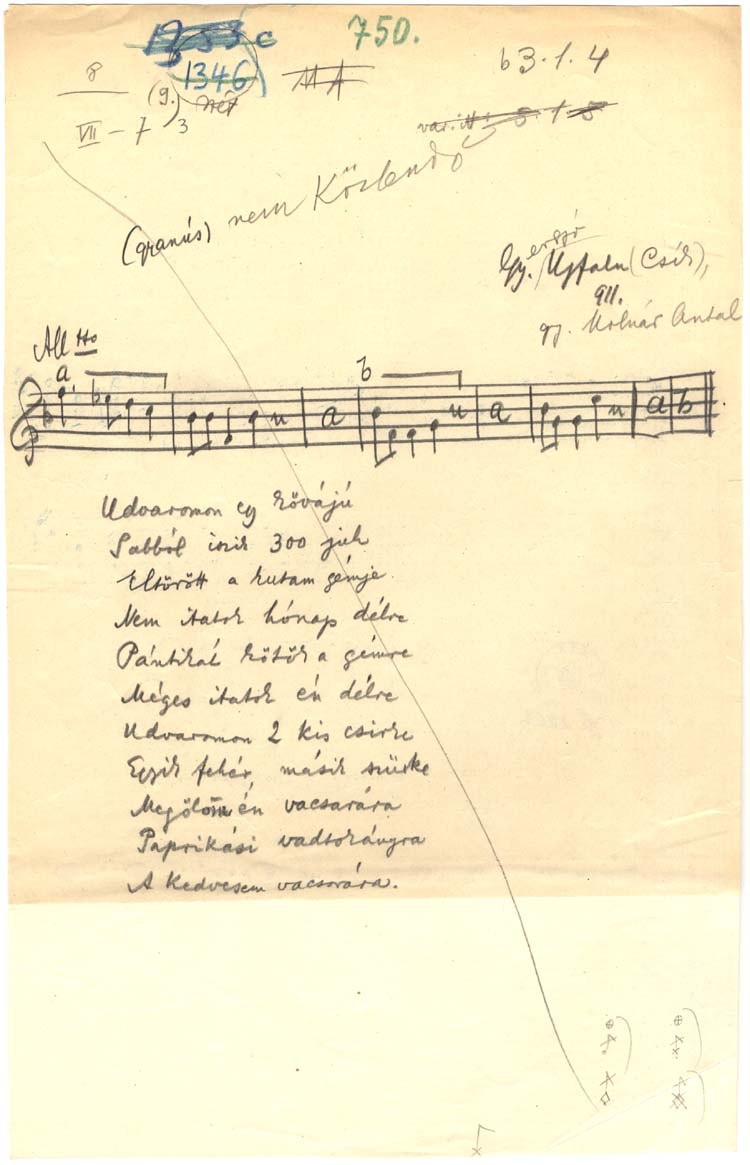 750.
1346
8
VII - 7
(9.)
3
63.1.4
nem Közlendő
Gy. Ujfalu (Csík),
911.
gy. Molnár Antal
All tto
a b
a a a b
Udvaromon egy kőváju
Sabból iszik 300 juh
Eltörött a kutam gémje
Nem itatok hónap délre
Pántikát kötök a gémre
Méges itatok én délre
Udvaromon 2 kis csirke
Egyik fehér, másik szürke
Megölöm én vacsarára
Paprikási vadtohányra
A kedvesem vacsorára.